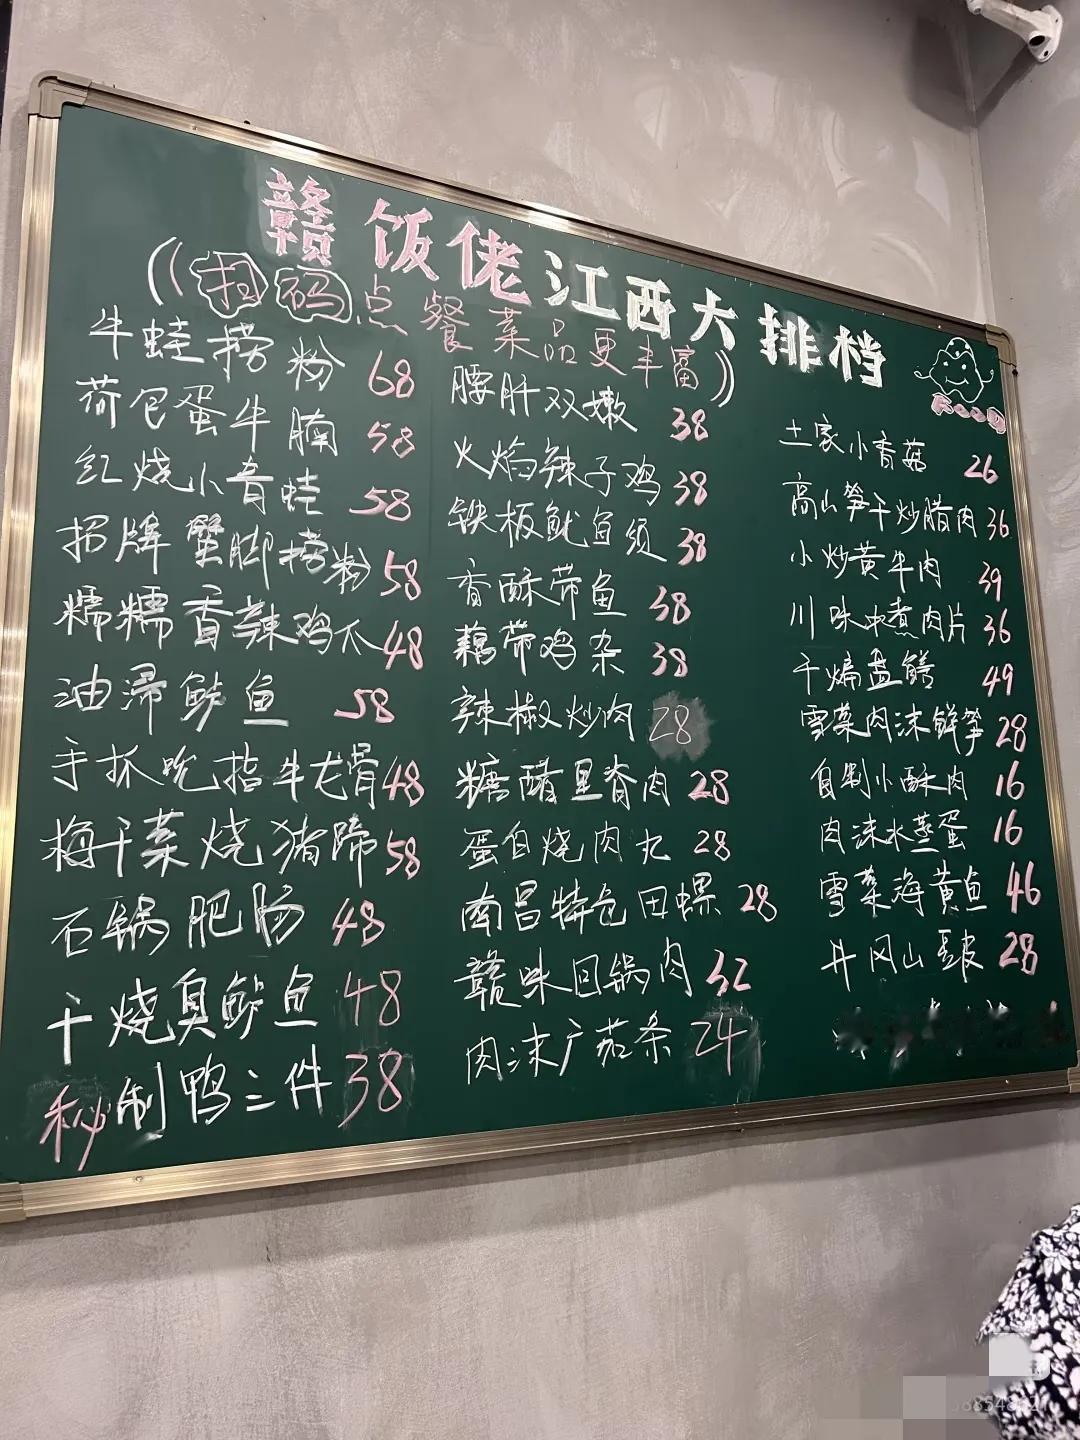 赣饭佬江西大排档
((扫码点餐菜品更丰富))
牛蛙捞粉 68
荷包蛋牛腩 58
红烧小青蛙 58
招牌蟹脚捞粉 58
糯糯香辣鸡爪 48
油浸鲈鱼 58
手抓吮指牛龙骨 48
梅干菜烧猪蹄 58
石锅肥肠 48
干烧臭鲈鱼 48
秘制鸭三件 38
腰肝双嫩 38
火焰辣子鸡 38
铁板鱿鱼须 38
香酥带鱼 38
藕带鸡杂 38
辣椒炒肉 28
糖醋里脊肉 28
蛋白烧肉丸 28
南昌特色田螺 28
赣味回锅肉 32
肉沫广茄条 24
土家小香菇 26
高山笋干炒腊肉 36
小炒黄牛肉 39
川味水煮肉片 36
干煸盘鳝 49
雪菜肉沫鲜笋 28
自制小酥肉 16
肉沫水蒸蛋 16
雪菜海黄鱼 46
井冈山豆皮 28